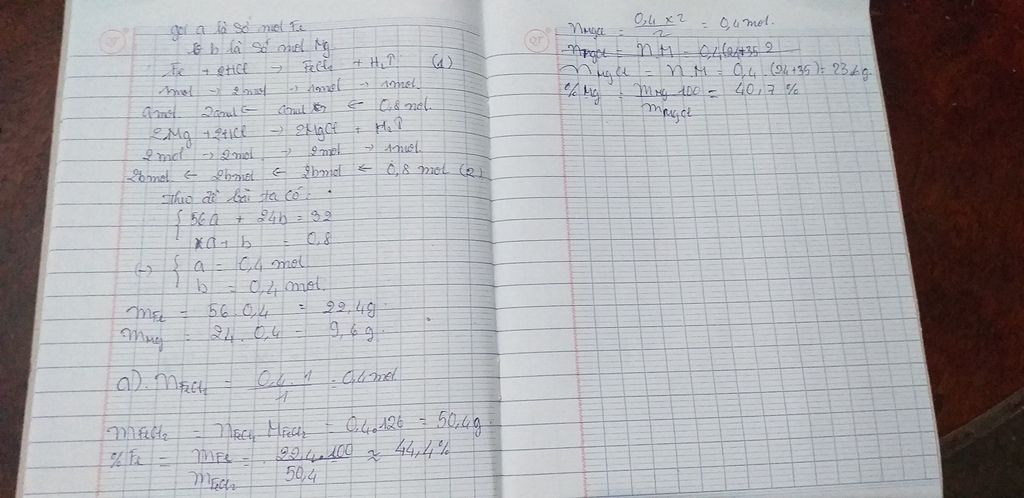 gọi a là số mol Fe
b là số mol Mg
Fe + 2HCl → FeCl₂ + H₂↑ (1)
1mol → 2mol → 1mol → 1mol
a mol 2amol ← amol ← 0,8 mol
2Mg + 2HCl → 2MgCl + H₂↑
2mol → 2mol → 2mol → 1mol
2bmol ← 2bmol ← 2bmol ← 0,8 mol (2)
Theo đề bài ta có:
56a + 24b = 32
a + b = 0,8
(-) a = 0,4 mol
b = 0,4 mol.
mFe = 56.0,4 = 22,4g
mMg = 24.0,4 = 9,6g.
a). nFeCl₂ = 0,4.1/1 = 0,4mol
mFeCl₂ = nFeCl₂ MFeCl₂ = 0,4.126 = 50,4g
%Fe = mFe/mFeCl₂ = 22,4.100/50,4 ≈ 44,4%
nMgCl = 0,4 x 2/2 = 0,4 mol.
nMgCl = nM = 0,4(24+35
mMgCl = nM = 0,4.(24+35) = 23,6g
%Mg = mMg.100/mMgCl = 40,7%